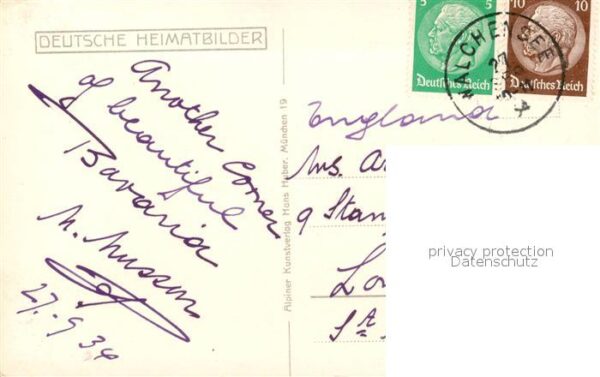 DEUTSCHE HEIMATBILDER
Another corner
of beautiful
Bavaria
27.9.34
Alpiner Kunstverlag Hans Huber, München 19
5 5
Deutsches Reich
10 10
Deutsches Reich
WALCHENSEE
27
England
Mrs. A
9 Stan
Lo
privacy protection
Datenschutz